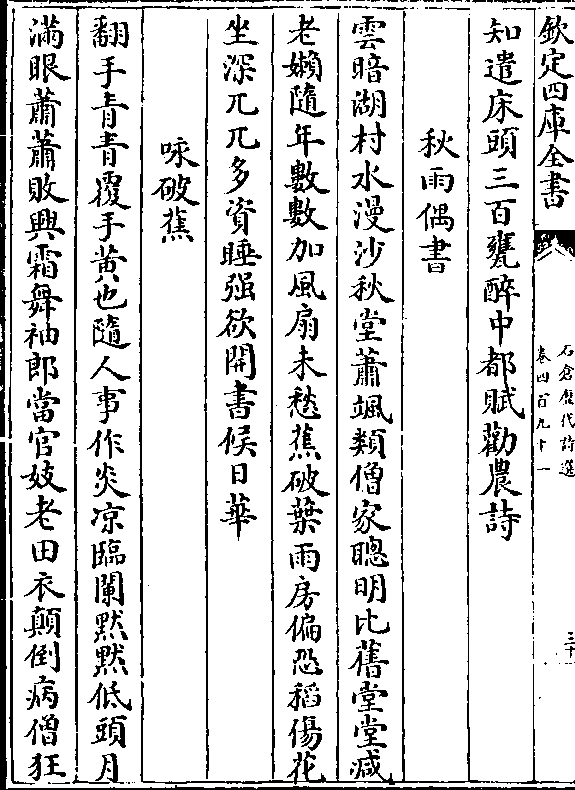 欽定四庫全書
石倉歷代詩選
卷四百九十一
三十
知遣床頭三百甕醉中都賦勸農詩
秋雨偶書
雲暗湖村水漫沙秋堂蕭颯類僧家聰明比舊堂堂減
老嬾隨年數數加風扇未愁蕉破葉雨房偏恐稻傷花
坐深兀兀多資睡强欲開書候日華
咏破蕉
翻手青青覆手黃也隨人事作炎凉臨闌黙黙低頭月
滿眼蕭蕭敗興霜舞袖郎當官妓老田衣顛倒病僧狂